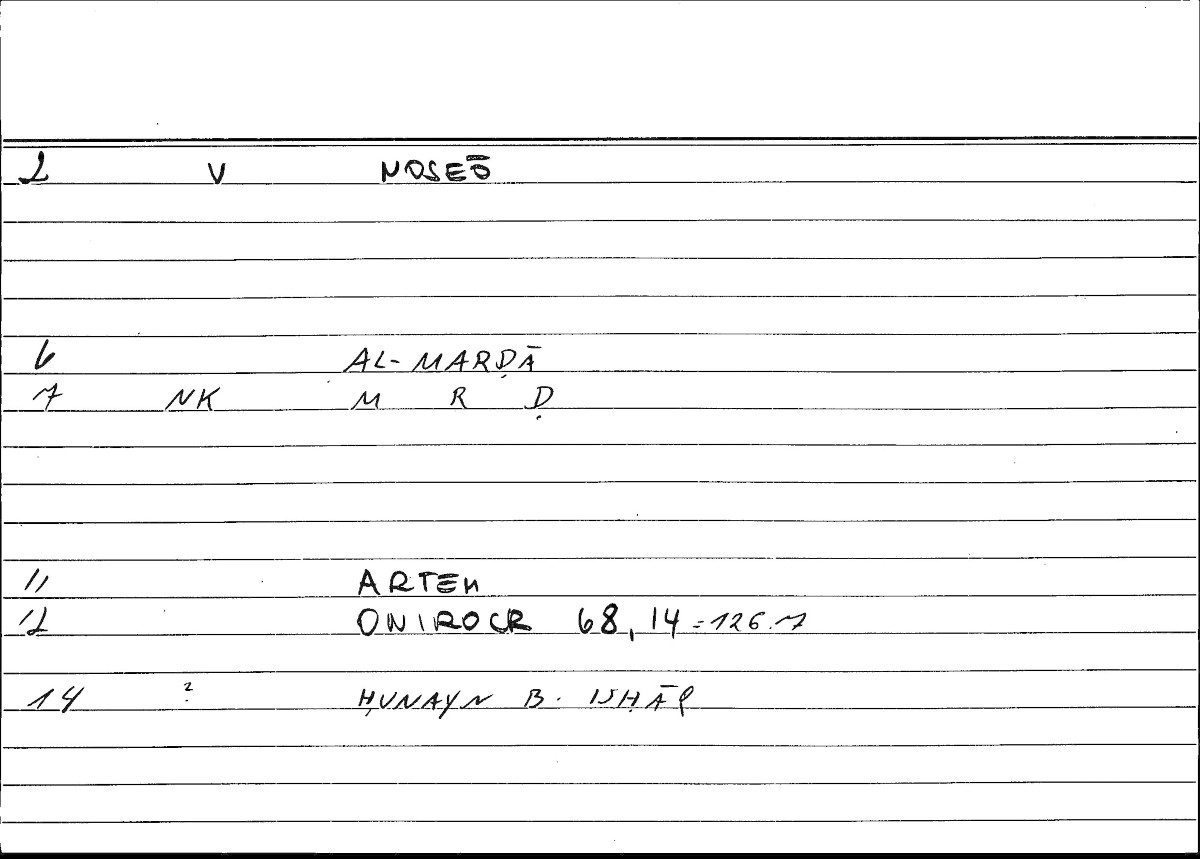 2 V NOSEŌ
6 AL-MARḌĀ
7 NK M R Ḍ
11 ARTEM
12 ONIROCR 68,14 = 126.7
14 ? ḤUNAYN B. ISḤĀQ